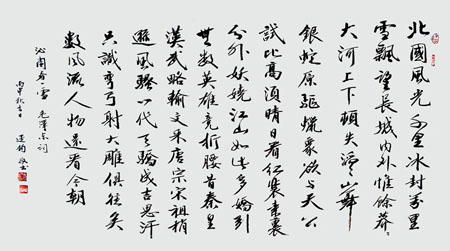 北國風光千里冰封萬里
雪飄望長城内外惟餘莽〻
大河上下頓失滔〻山舞
銀蛇原驅蠟象欲与天公
試比高須晴日看紅裝素裹
分外妖嬈江山如此多嬌引
無數英雄競折腰昔秦皇
漢武略輸文采唐宗宋祖稍
遜風騷一代天驕成吉思汗
只識彎弓射大雕俱往矣
數風流人物還看今朝
沁園春雪 毛澤東詞
丙申秋吉日